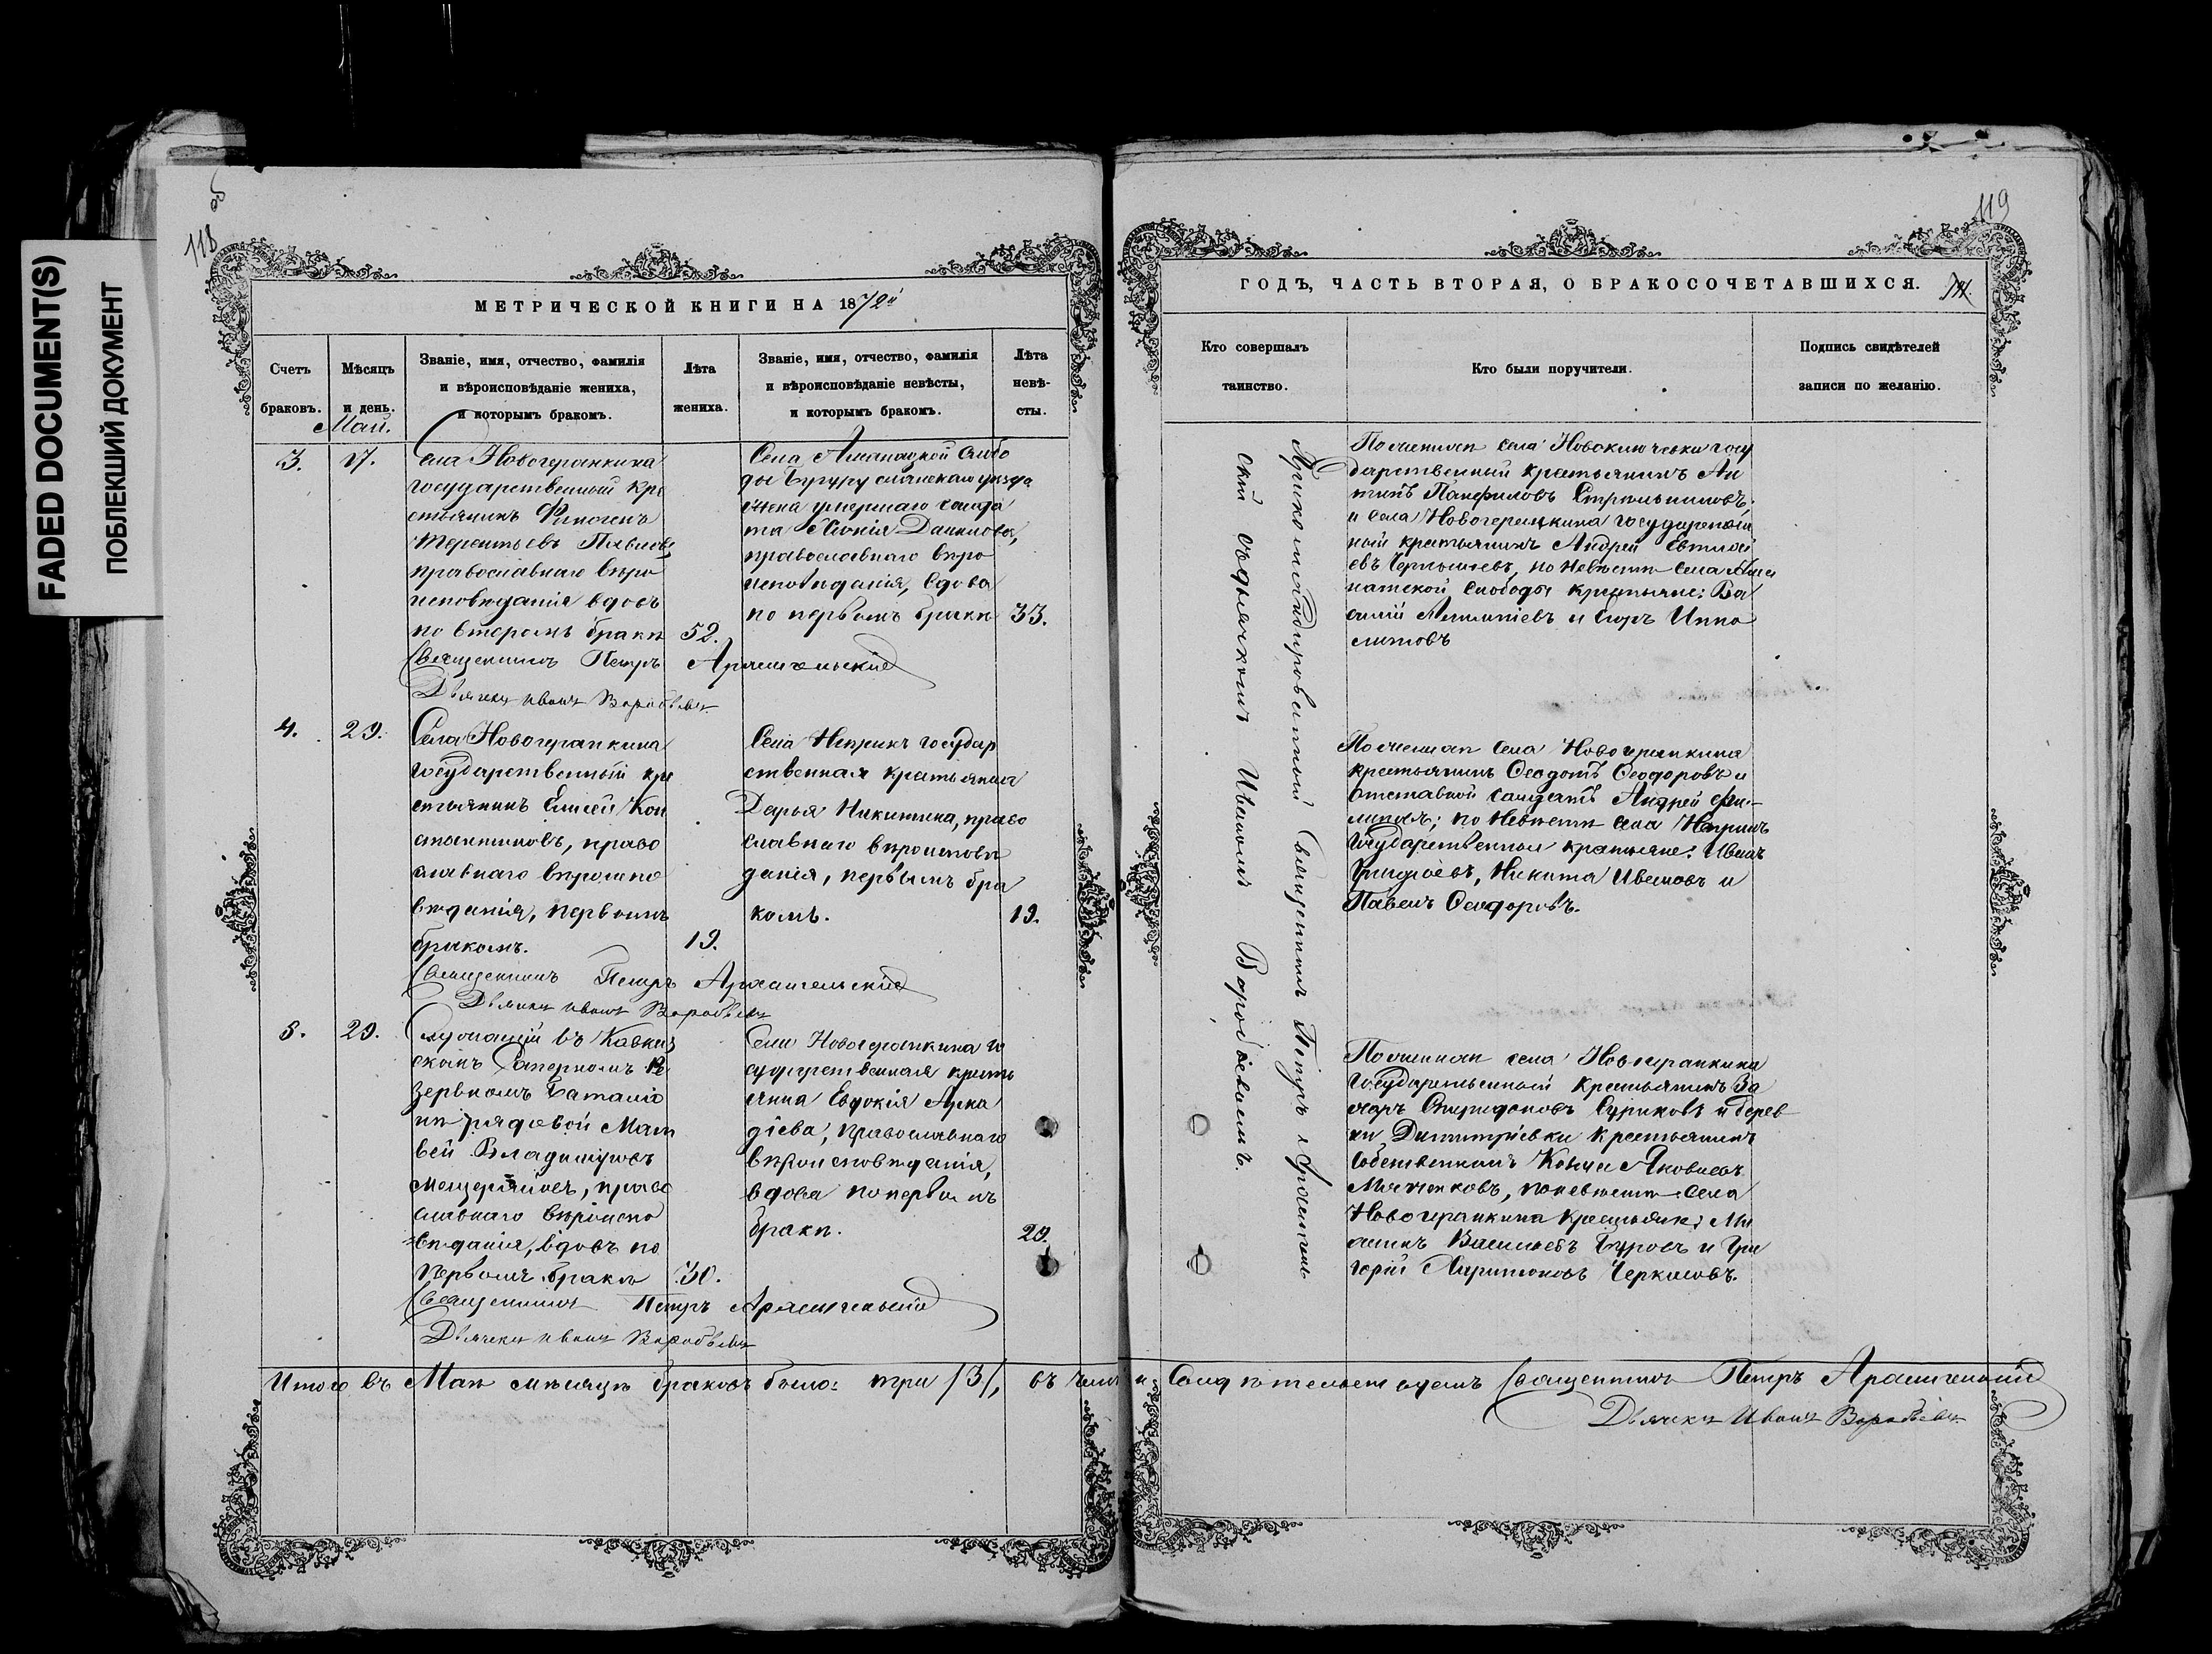 FADED DOCUMENT(S)
ПОБЛЕКШИЙ ДОКУМЕНТ
118 об
МЕТРИЧЕСКОЙ КНИГИ НА 1872й
Счетъ браковъ.
Мѣсяцъ и день.
Званіе, имя, отчество, фамилія и вѣроисповѣданіе жениха, и которымъ бракомъ.
Лѣта жениха.
Званіе, имя, отчество, фамилія и вѣроисповѣданіе невѣсты, и которымъ бракомъ.
Лѣта невѣсты.
Май.
3.
17.
Села Новогеранкина
государственный кре
стьянинъ Финогенъ
Терентьевъ Павловъ,
православнаго вѣро
исповѣданія вдовъ
по второмъ бракѣ
52.
Села
ды Бугурусланскаго уѣзда
жена умершаго солда
та Данилова,
православнаго вѣро
исповѣданія, вдова
по первомъ бракѣ
33.
Священникъ Петръ Архангельскій
Дьячекъ Иванъ Воробьевъ
4.
29.
Села Новогеранкина
государственный кре
стьянинъ Елисей Кон
стантиновъ, право
славнаго вѣроиспо
вѣданія, первымъ
бракомъ.
19.
Села Неприкъ государ
ственная крестьянка
Дарья Никитина, право
славнаго вѣроисповѣ
данія, первымъ бра
комъ.
19.
Священникъ Петръ Архангельскій
Дьячекъ Иванъ Воробьевъ
5.
29.
Служащій въ Кавказ
скомъ Саперномъ Ре
зервномъ Баталіо
нѣ рядовой Мат
вей Владиміровъ
Мещеряковъ, право
славнаго вѣроиспо
вѣданія, вдовъ по
первомъ бракѣ
30.
Села Новогеранкина го
сударственная кресть
янка Евдокія Арка
діева, православнаго
вѣроисповѣданія,
вдова по первомъ
бракѣ.
29.
Священникъ Петръ Архангельскій
Дьячекъ Иванъ Воробьевъ
Итого въ Маѣ мѣсяцѣ браковъ было: три /3/,
119
ГОДЪ, ЧАСТЬ ВТОРАЯ, О БРАКОСОЧЕТАВШИХСЯ.
Кто совершалъ таинство.
Кто были поручители.
Подпись свидѣтелей записи по желанію.
Прикомандированный Священникъ Петръ Архангель
скій съ дьячкомъ Иваномъ Воробьевымъ.
По женихѣ села Новоключевки госу
дарственный крестьянинъ Ан
типъ Панфиловъ Стрѣльниковъ,
и села Новогеранкина государствен
ный крестьянинъ Андрей
евъ Чернышевъ, по невѣстѣ села
слободы крестьяне: Ва
силій и Егоръ Иппо
литовъ
По женихѣ села Новогеранкина
крестьянинъ Ѳеодотъ Ѳеодоровъ и
отставной солдатъ Андрей Фи-
липовъ; по невѣстѣ села Неприкъ
государственные крестьяне: Иванъ
Григорьевъ, Никита Ивановъ и
Павелъ Ѳеодоровъ.
По женихѣ села Новогеранкина
государственный крестьянинъ За
харъ Спиридоновъ Суриковъ и дерев
ни Димитріевки крестьянинъ
собственникъ Яковлевъ
по невѣстѣ села
Новогеранкина крестьяне: Ми
хаилъ Васильевъ Буровъ и Гри
горій Харитоновъ Черкасовъ.
Священникъ Петръ Архангельскій
Дьячекъ Иванъ Воробьевъ